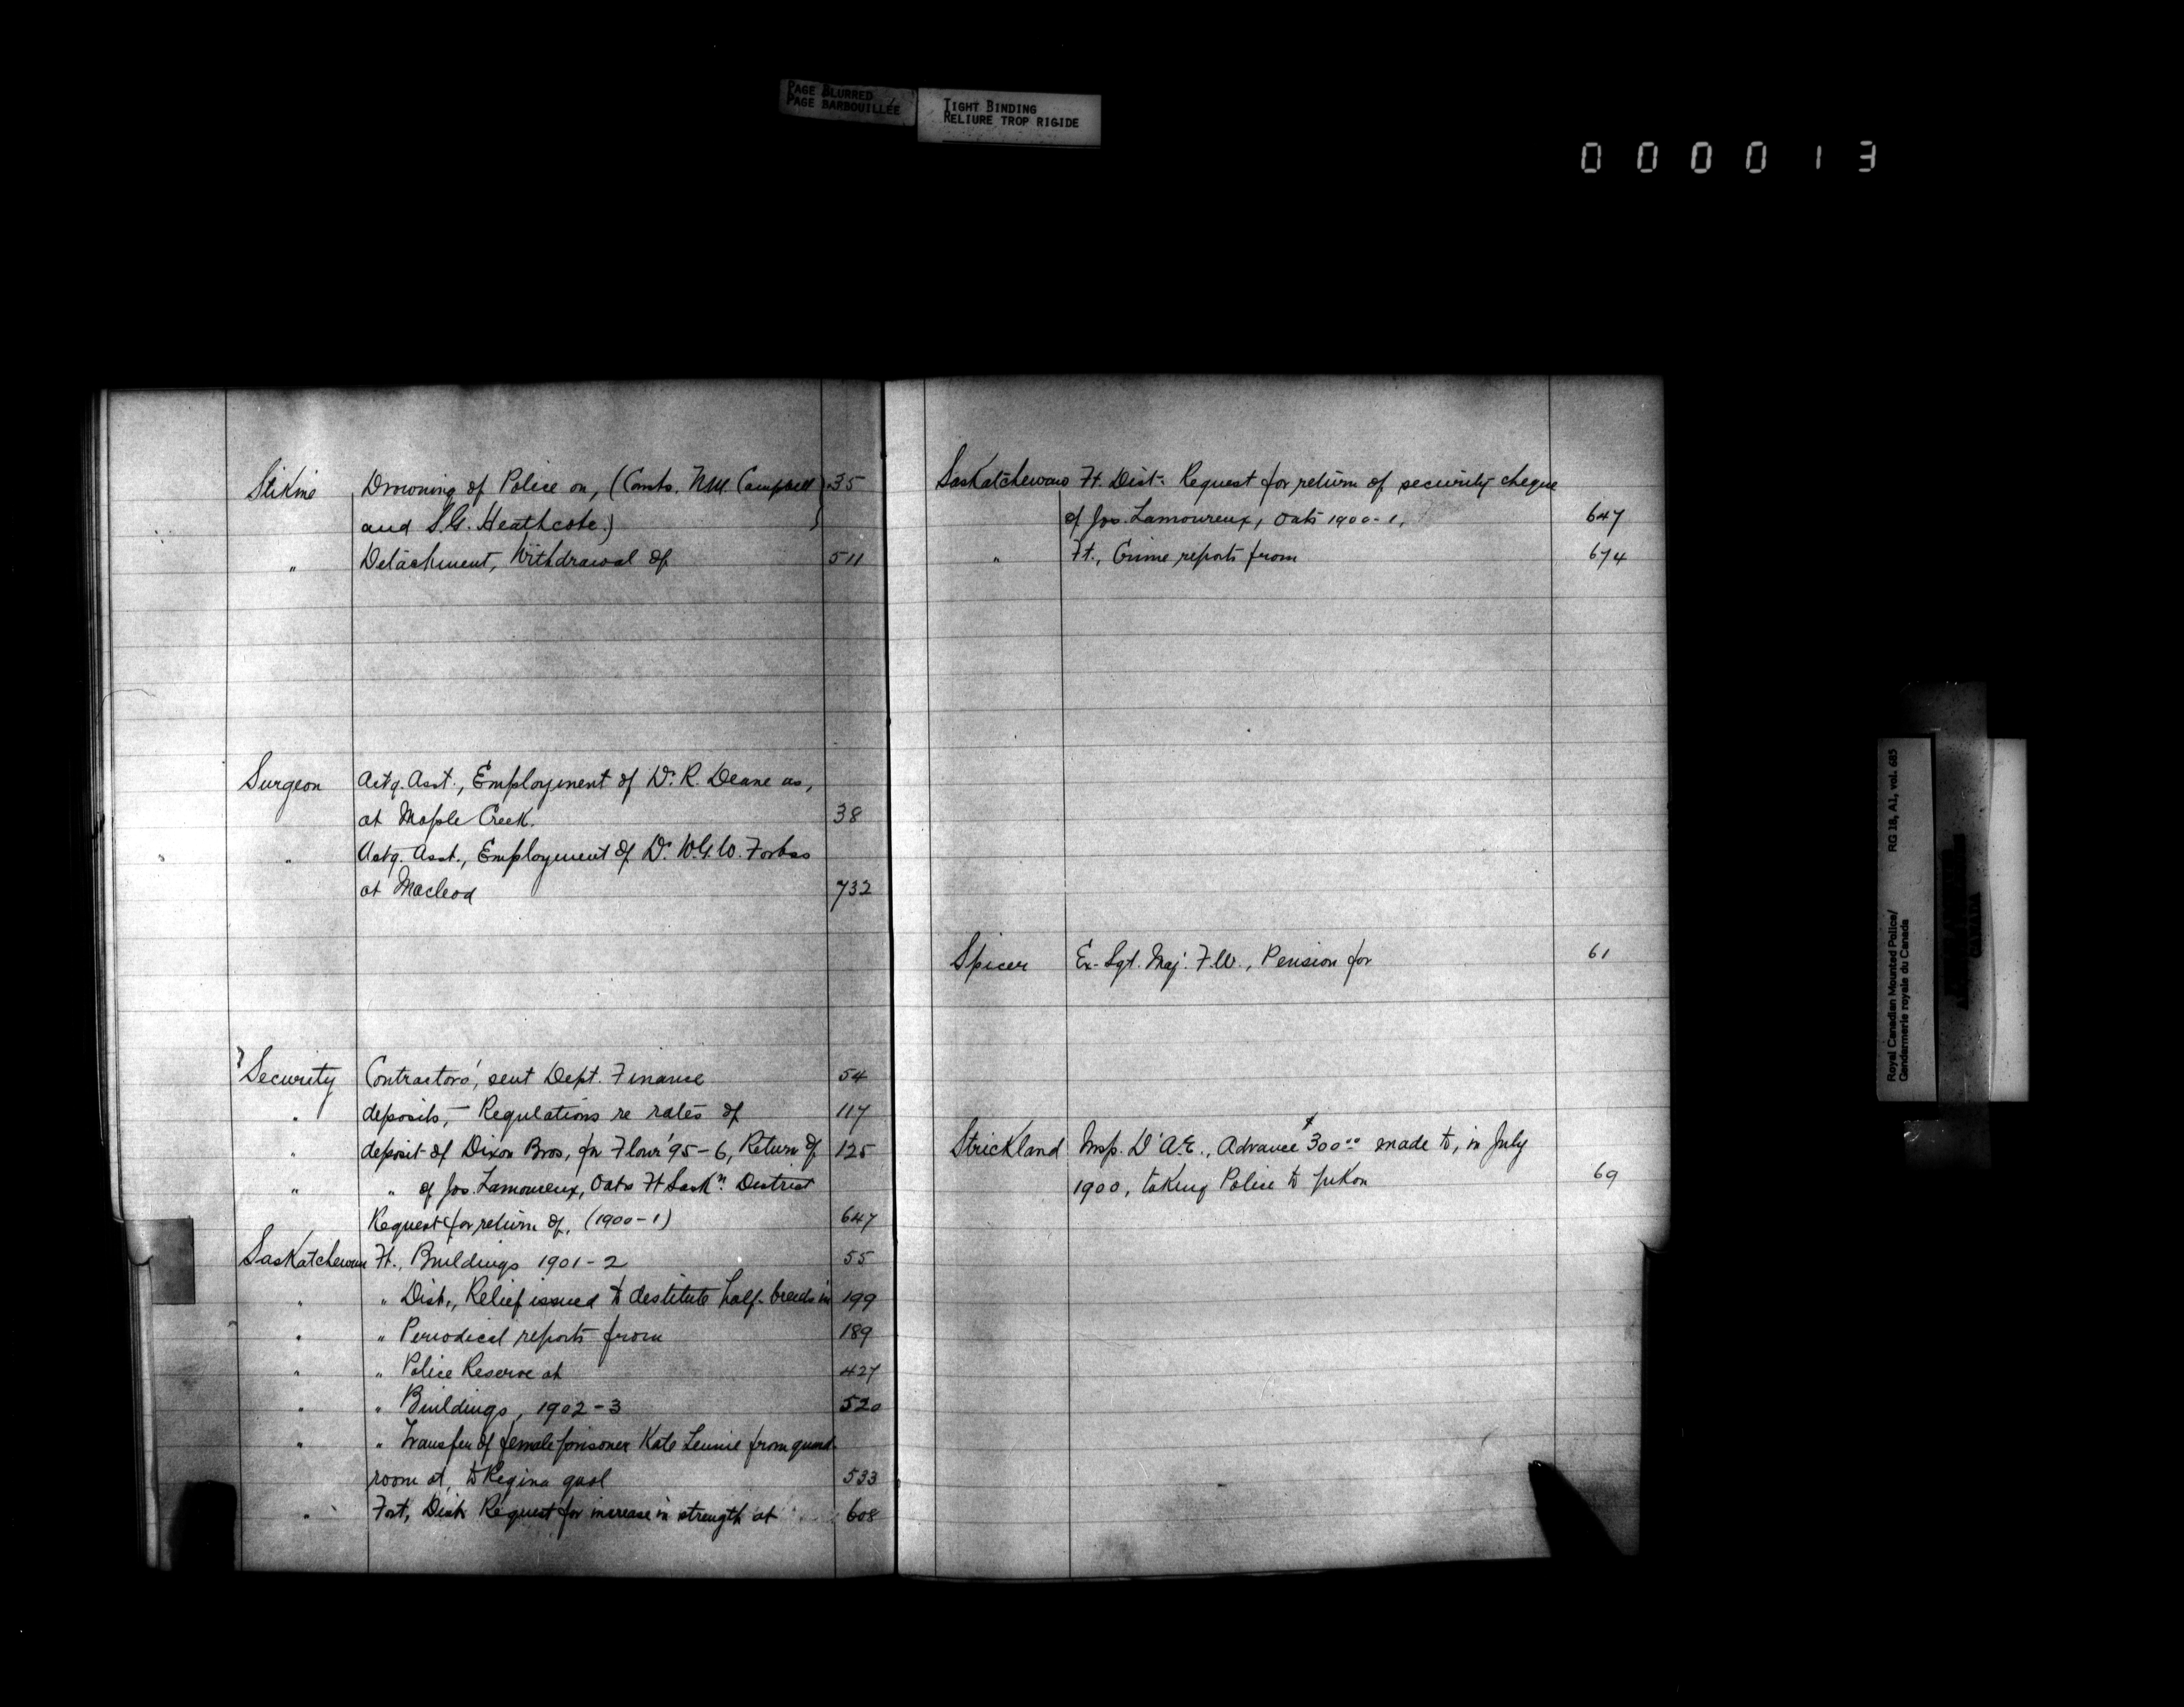 PAGE BLURRED
PAGE BARBOUILLÉE
TIGHT BINDING
RELIURE TROP RIGIDE
000013
Stikine Drowning of Police on, (Consts. N.M. Campbell 35
and S.G. Heathcote.)
" Detachment, Withdrawal of 511
Surgeon Actg. Asst., Employment of Dr. R. Deane as,
at Maple Creek. 38
" Actg. Asst., Employment of Dr. W.G.W. Forbes
at Macleod 732
Security Contractors', sent Dept. Finance 54
" deposits, - Regulations re rates of 117
" deposit of Dixon Bros, for Flour '95-6, Return of 125
" " of Jos. Lamoureux, Oats Ft Saskn. District
Request for return of, (1900-1) 647
Saskatchewan Ft., Buildings 1901-2 55
" " Dist., Relief issued to destitute half-breeds in 199
" " Periodical reports from 189
" " Police Reserve at 427
" " Buildings, 1902-3 520
" " Transfer of female prisoner Kate Lennie from guard
room at, to Regina gaol 533
" Fort, Dist. Request for increase in strength at 608
Saskatchewan Ft. Dist. Request for return of security cheque
of Jos. Lamoureux, Oats 1900-1, 647
" Ft., Crime reports from 674
Spicer Ex-Sgt. Maj. F.W., Pension for 61
Strickland Insp. D'A.E., Advance $300.00 made to, in July
1900, taking Police to Yukon 69
Royal Canadian Mounted Police/
Gendarmerie royale du Canada
RG 18, A1, vol. 685
CANADA